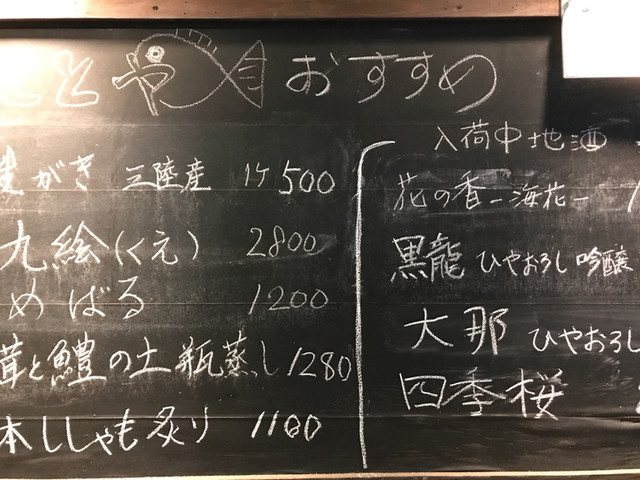 とや おすすめ
がき 三陸産 1ケ 500
九絵(くえ) 2800
めばる 1200
茸と鱧の土瓶蒸し 1280
本ししゃも炙り 1100
入荷中地酒
花の香-海花-
黒龍 ひやおろし 吟醸
大那 ひやおろし
四季桜